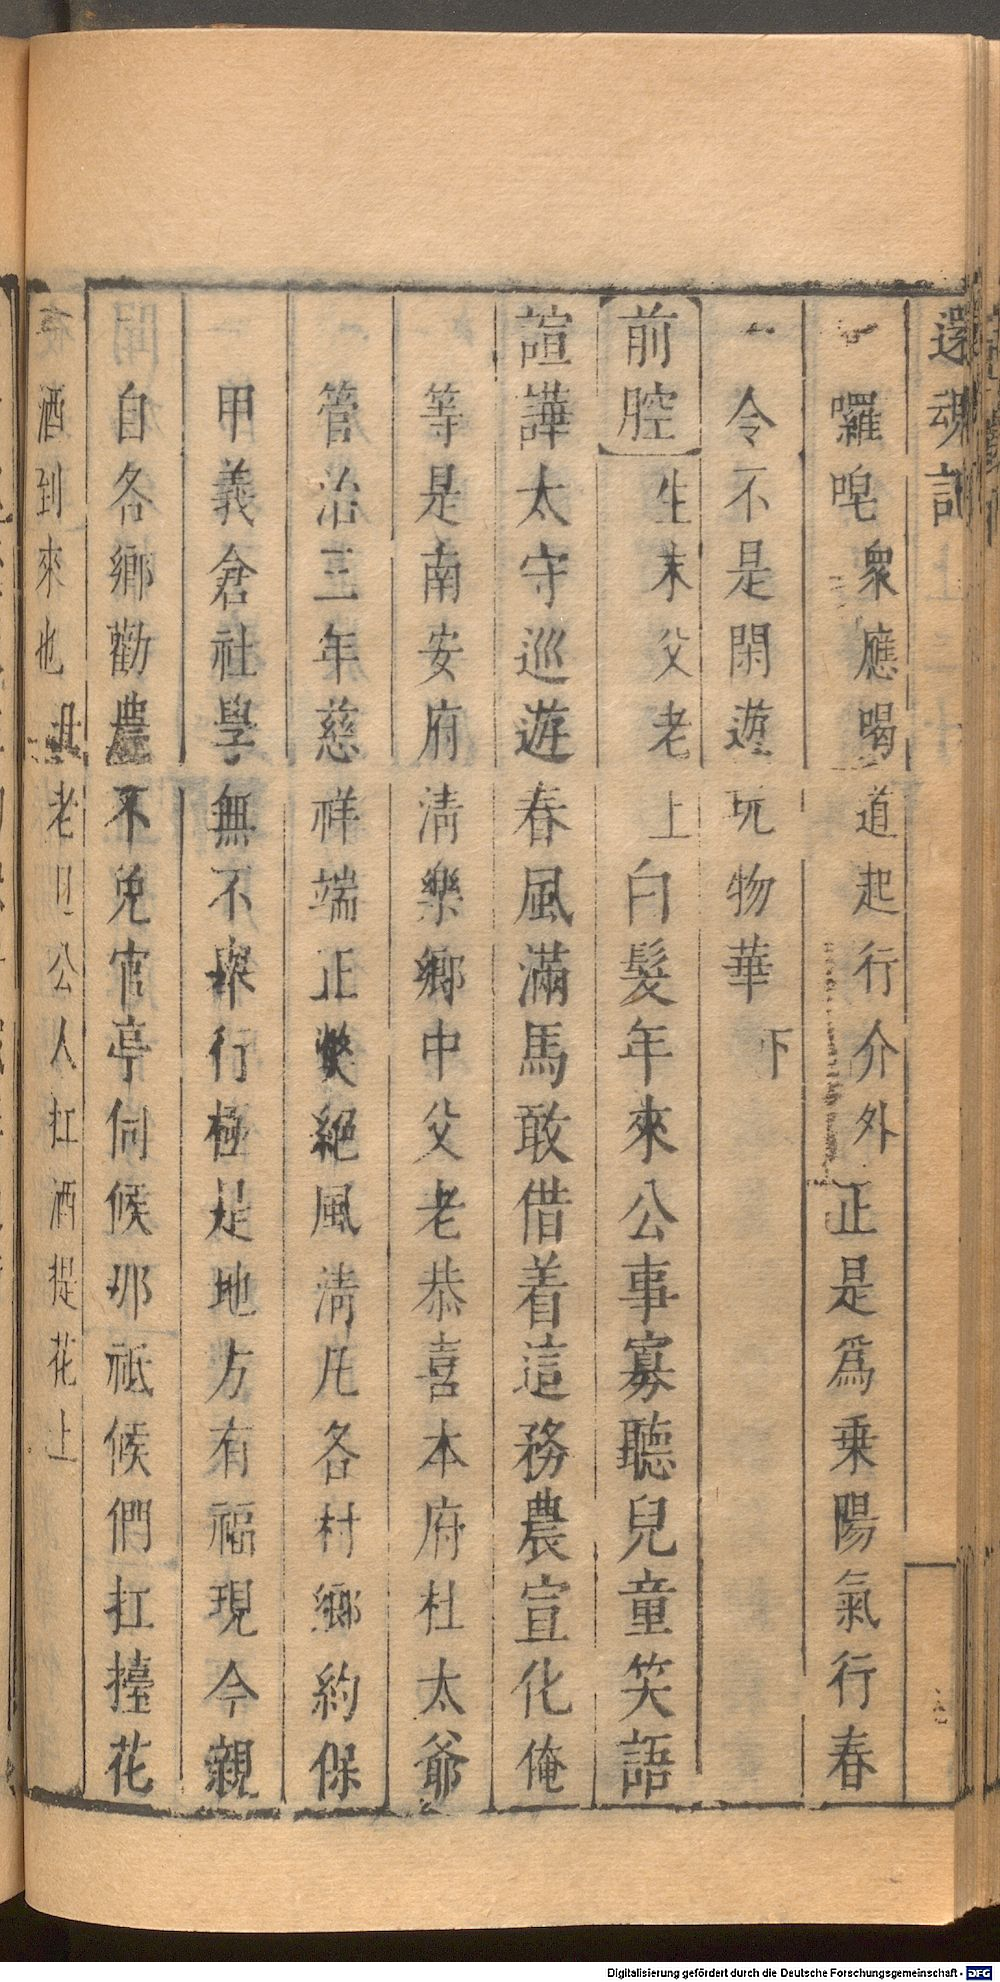 還魂記
囉唣衆應喝道起行介外正是爲乘陽氣行春
令不是閑遊玩物華下
前腔生末父老上白髮年來公事寡聽兒童笑語
諠譁太守巡遊春風滿馬敢借着這務農宣化俺
等是南安府淸樂鄉中父老恭喜本府杜太爺
管治三年慈祥端正獘絕風淸凡各村鄉約保
甲義倉社學無不舉行極是地方有福現今親
自各鄉勸農不免官亭伺候那祗候們扛擡花
酒到來也老旦公人扛酒提花上
Digitalisierung gefördert durch die Deutsche Forschungsgemeinschaft - DFG